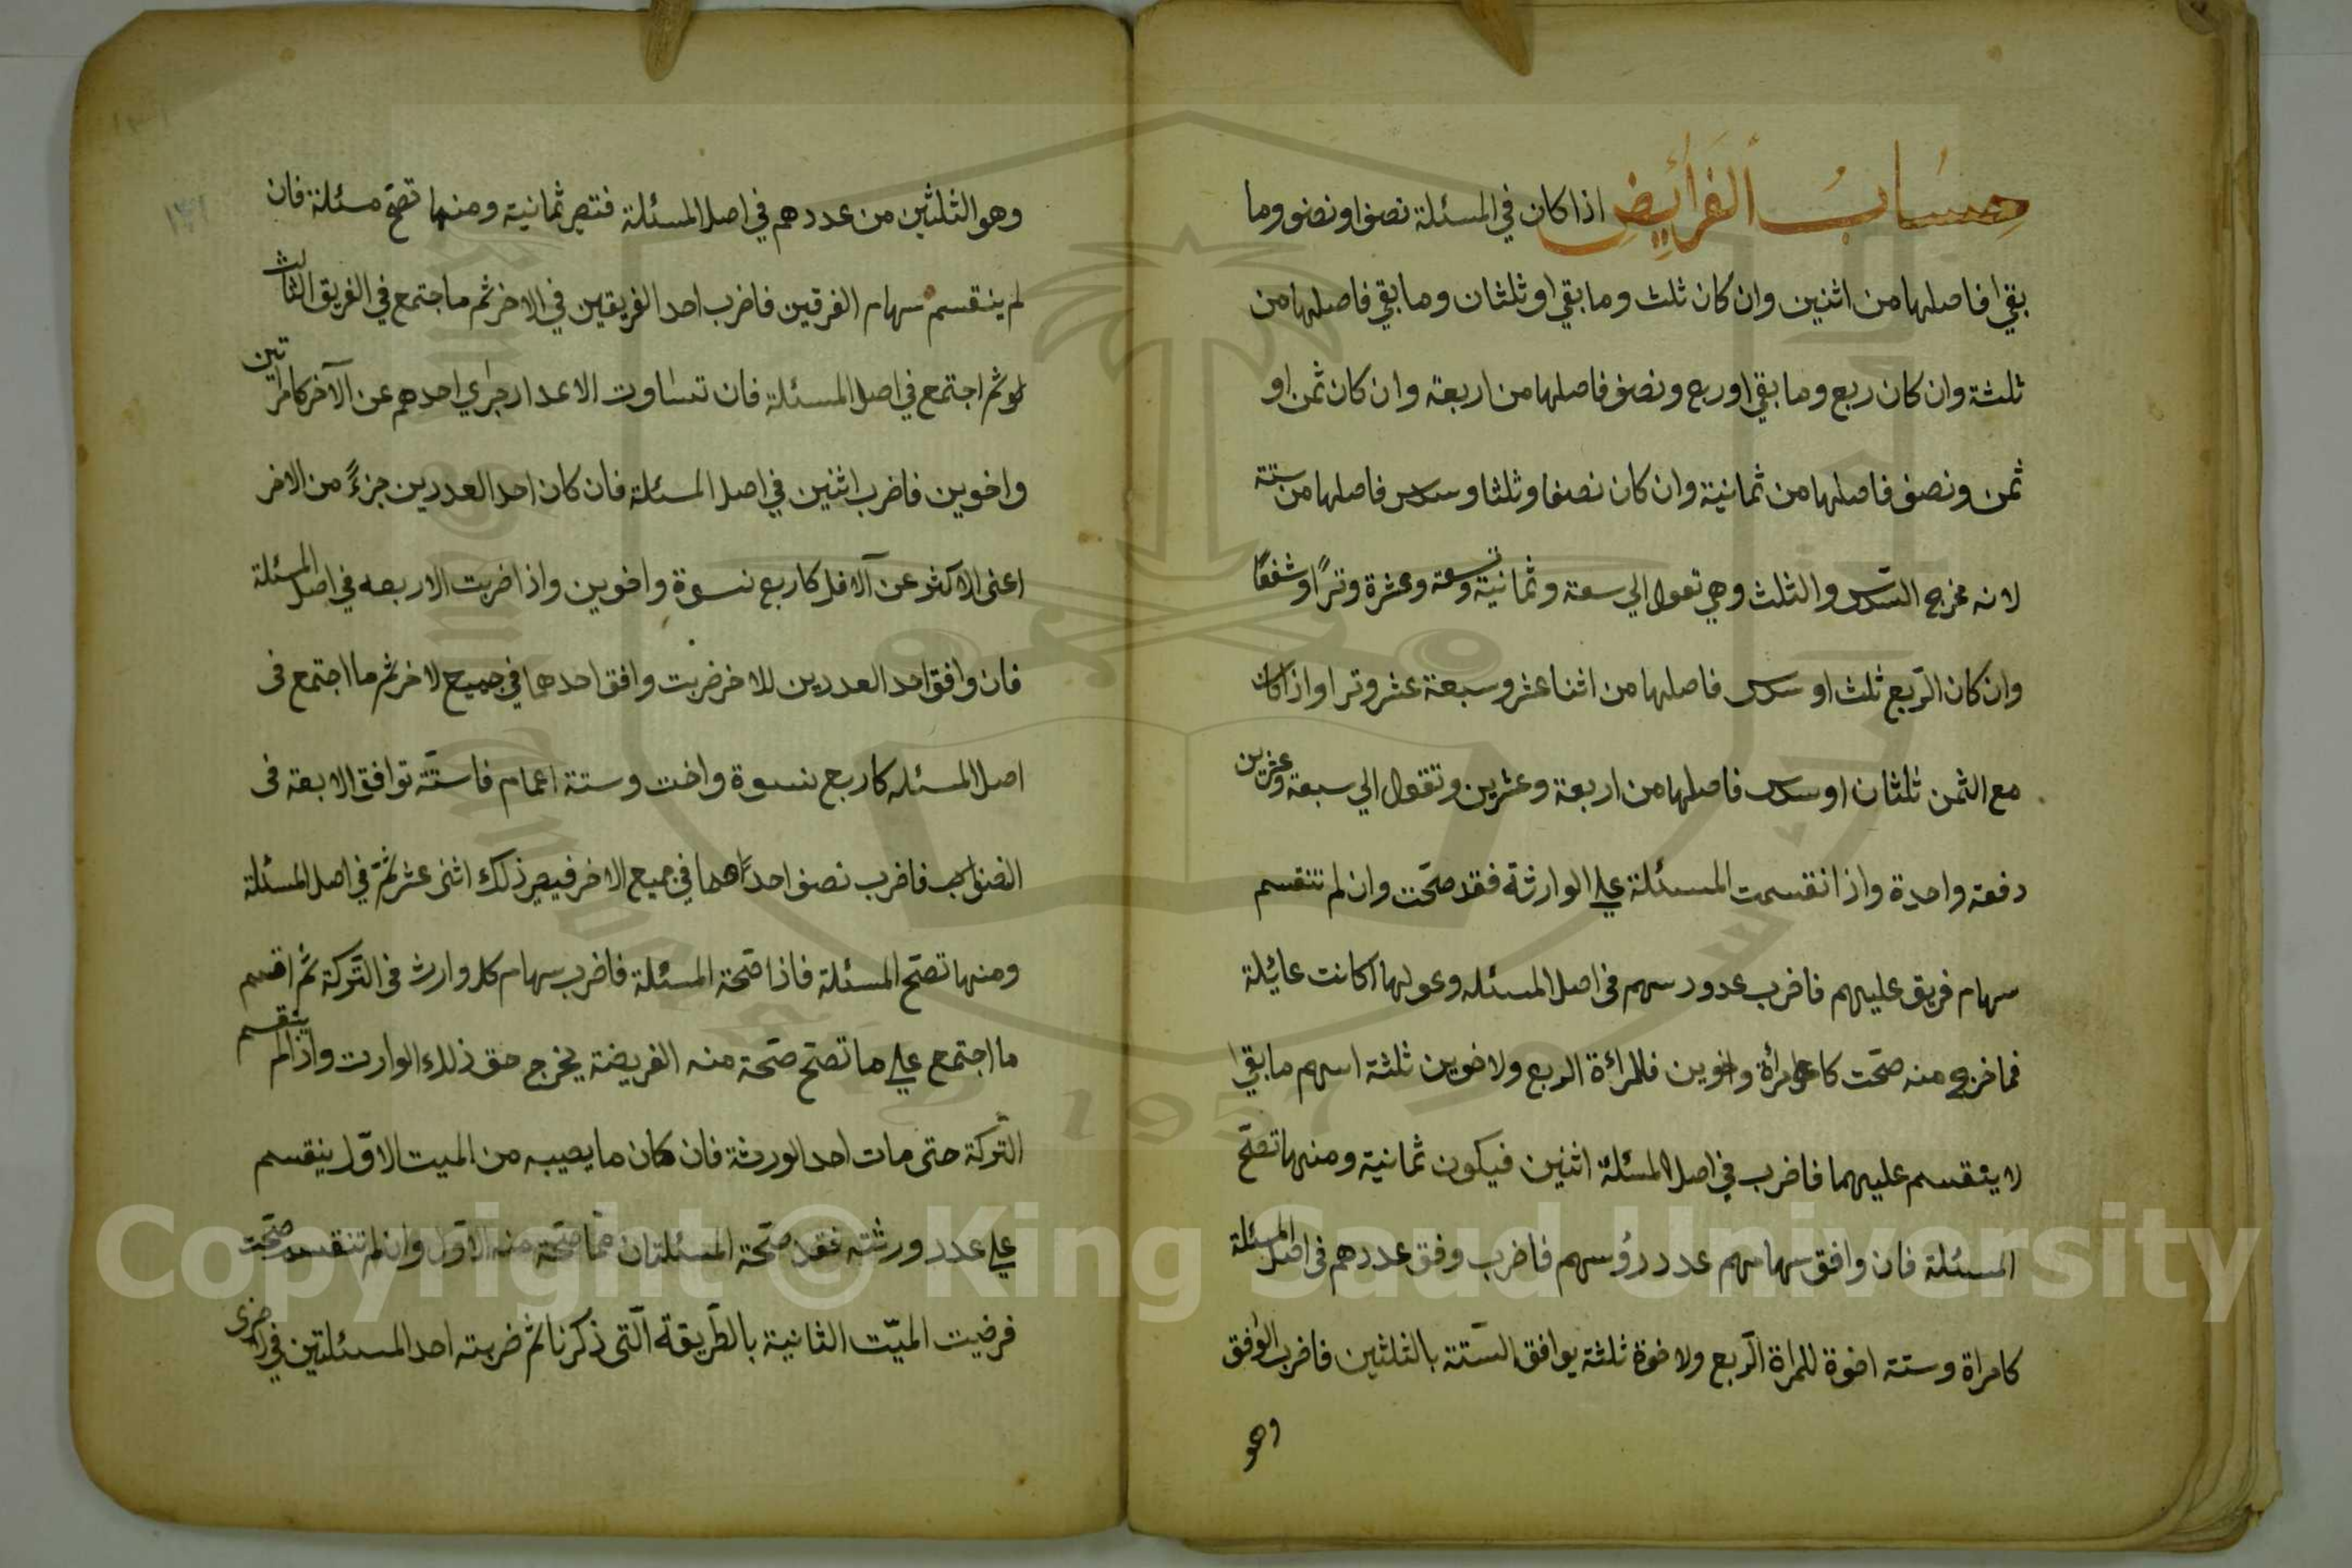 حِسَابُ الفَرَائِضِ اذا كان في المسئلة نصف او نصف وما
بقي افاصلها من اثنين وان كان ثلث وما بقي او ثلثان وما بقي فاصلها من
ثلثة وان كان ربع وما بقي او ربع ونصف فاصلها من اربعة وان كان ثمن او
ثمن ونصف فاصلها من ثمانية وان كان نصفا وثلثا وسدس فاصلها من ستة
لانه مخرج السّدس والثلث وهي تعول الي سعة وثمانية وتسعة وعشرة وترًا وشفعًا
وان كان الرّبع ثلث او سدس فاصلها من اثنا عشر وسبعة عشر وترا واذا كان
مع الثمن ثلثان او سدس فاصلها من اربعة وعشرين وتقول الي سبعة وعشرين
دفعة واحدة واذا انقسمت المسئلة علي الوارثة فقد صحّت وان لم تنقسم
سهام فريق عليهم فاضرب عدد رسهم في اصل المسئله وعولها اكانت عائلة
فما خرج منه صحّت كامرأة واخوين فللمرأة الربع ولاخوين ثلثة اسهم ما بقي
لا ينقسم عليهما فاضرب في اصل المسئلة اثنين فيكون ثمانية ومنها تصحّ
المسئلة فان وافق سهامهم عدد رؤسهم فاضرب وفق عددهم في اصل المسئلة
كامراة وستة اخوة للمراة الرّبع ولاخوة ثلثة يوافق السّتة بالثلثين فاضرب الوفق
وهو
وهو الثلثين من عددهم في اصل المسئلة فتصير ثمانية ومنها تصحّ مسئلة فان
لم ينقسم سهام الفرقين فاضرب احد الفريقين في الاخر ثم ماجتمع في الفريق الثالث
لوثم اجتمع في اصل المسئلة فان تساوت الاعداد جزي احدهم عن الآخر كامراتين
واخوين فاضرب اثنين في اصل المسئلة فان كان احد العددين جزءً من الاخر
اعنى الاكثر عن الاقل كاربع نسوة واخوين واذا ضربت الاربعه في اصل المسئلة
فان وافق احد العددين للاخر ضربت وافق احدهما في جميع لاخر ثم ما اجتمع فى
اصل المسئله كاربع نسوة واخت وستة اعمام فاستّة توافق الابعة فى
النصف فاضرب نصف احداهما في جميع الاخر فيصير ذلك اثنى عشر ثمّ في اصل المسئلة
ومنها تصحّ المسئلة فاذا صّحة المسئلة فاضرب سهام كل وارث فى التّركة ثم اقسم
ما اجتمع علي ما تصحّ صّحة منه الفريضة يخرج حق ذلك الوارث واذا لم ينقسم
التّركة حتى مات احد الورثة فان كان ما يصيبه من الميت الاوّل ينقسم
علي عدد ورثته فقد صّحة المسئلتان ممّا صّحة منه الاوّل وان لم تنقسم صّحت
فرضيت الميّت الثانية بالطّريقة الّتى ذكرنا ثم ضربته احد المسئلتين في الاخرى